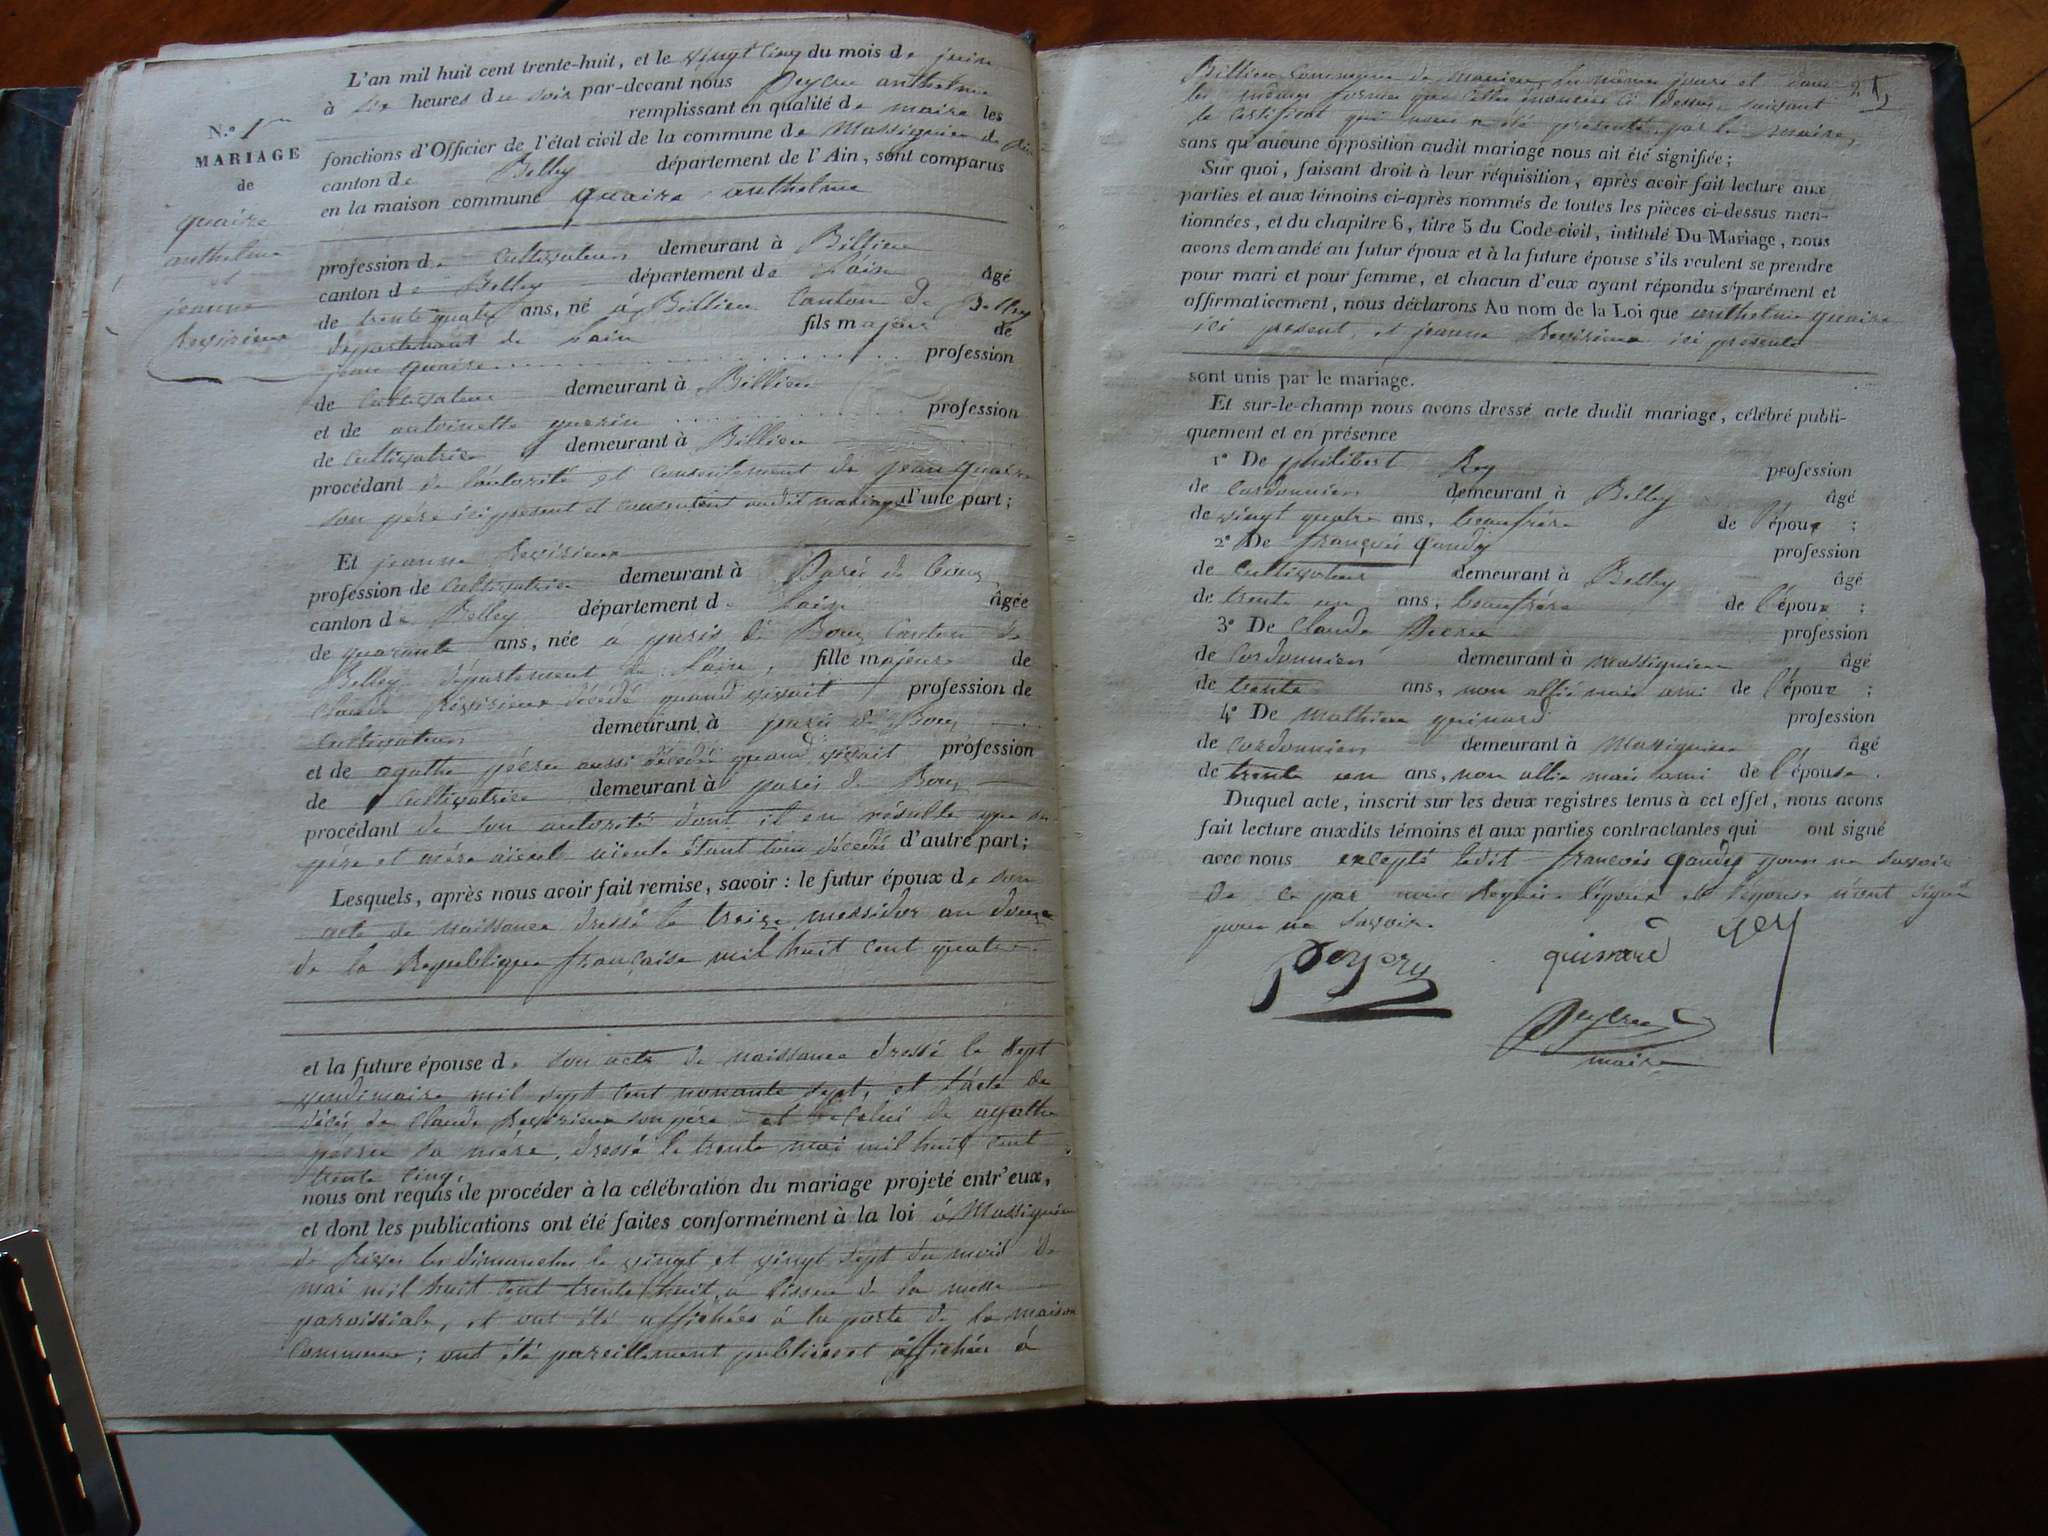 L'an mil huit cent trente-huit, et le vingt cinq du mois de juin
à six heures du soir par-devant nous Peysru anthelme
remplissant en qualité de maire les
fonctions d'Officier de l'état civil de la commune de Massignieu de Riv
canton de Belley département de l'Ain, sont comparus
en la maison commune quaire anthelme
N.º 1er
MARIAGE
de
quaire
anthelme
et
jeanne
profession de Cultivateur demeurant à Billieu
canton de Belley département de l'ain âgé
de trente quatre ans, né à Billieu Canton de Belley
département de l'ain fils majeur de
jean quaire profession
de Cultivateur demeurant à Billieu
et de antoinette guerin profession
de Cultivatrice demeurant à Billieu
procédant de l'autorité et consentement de jean quaire
son père ici présent et consentent audit mariage d'une part;
Et jeanne
profession de Cultivatrice demeurant à Paris de Bouz
canton de Belley département de l'ain âgée
de quarante ans, née a paris de Bouz Canton de
Belley département de l'ain, fille majeure de
Claude décédé quand vivait profession de
Cultivateur demeurant à paris de Bouz
et de agathe aussi décédée quand vivait profession
de Cultivatrice demeurant à paris de Bouz
procédant de son autorité dont il en résulte que ses
père et mère étant tous décédés d'autre part;
Lesquels, après nous avoir fait remise, savoir: le futur époux de son
acte de naissance dressé le treize messidor an douze
de la Republique française mil huit cent quatre
et la future épouse de son acte de naissance dressé le sept
vendimaire mil sept cent nonante sept, et l'acte de
décés de Claude son père et de celui de agathe
sa mère, dressé le trente mai mil huit cent
trente cinq,
nous ont requis de procéder à la célébration du mariage projeté entr'eux,
et dont les publications ont été faites conformément à la loi à Massignieu
de Rives les dimanches le vingt et vingt sept du mois de
mai mil huit cent trente huit, a l'issue de la messe
paroissiale, et ont été affichées à la porte de la maison
Commune; ont été pareillement publiées et affichées à
Billieu Commune de les mêmes jours et dans
les mêmes formes que celles énoncées ci dessus suivant
le certificat qui nous a été présenté par le maire,
sans qu'aucune opposition audit mariage nous ait été signifiée;
Sur quoi, faisant droit à leur réquisition, après avoir fait lecture aux
parties et aux témoins ci-après nommés de toutes les pièces ci-dessus men-
tionnées, et du chapitre 6, titre 5 du Code civil, intitulé Du Mariage, nous
avons demandé au futur époux et à la future épouse s'ils veulent se prendre
pour mari et pour femme, et chacun d'eux ayant répondu séparément et
affirmativement, nous déclarons Au nom de la Loi que anthelme quaire
ici present, et jeanne ici presente
sont unis par le mariage.
Et sur-le-champ nous avons dressé acte dudit mariage, célébré publi-
quement et en présence
1º De philibert Rey profession
de Cordonnier demeurant à Belley âgé
de vingt quatre ans, beaufrère de l'époux;
2º De françois gaudy profession
de Cultivateur demeurant à Belley âgé
de trente un ans, beaufrére de l'époux;
3º De Claude profession
de Cordonnier demeurant à Massignieu âgé
de trente ans, non allié mais ami de l'époux;
4º De Mathieu guinard profession
de Cordonnier demeurant à Massignieu âgé
de trente un ans, non allie mais ami de l'épouse.
Duquel acte, inscrit sur les deux registres tenus à cet effet, nous avons
fait lecture auxdits témoins et aux parties contractantes qui ont signé
avec nous excepté ledit françois gaudy pour ne savoir
de ce par nous Requis l'époux et l'épouse n'ont signé
pour ne savoir.
guinard
Rey
maire